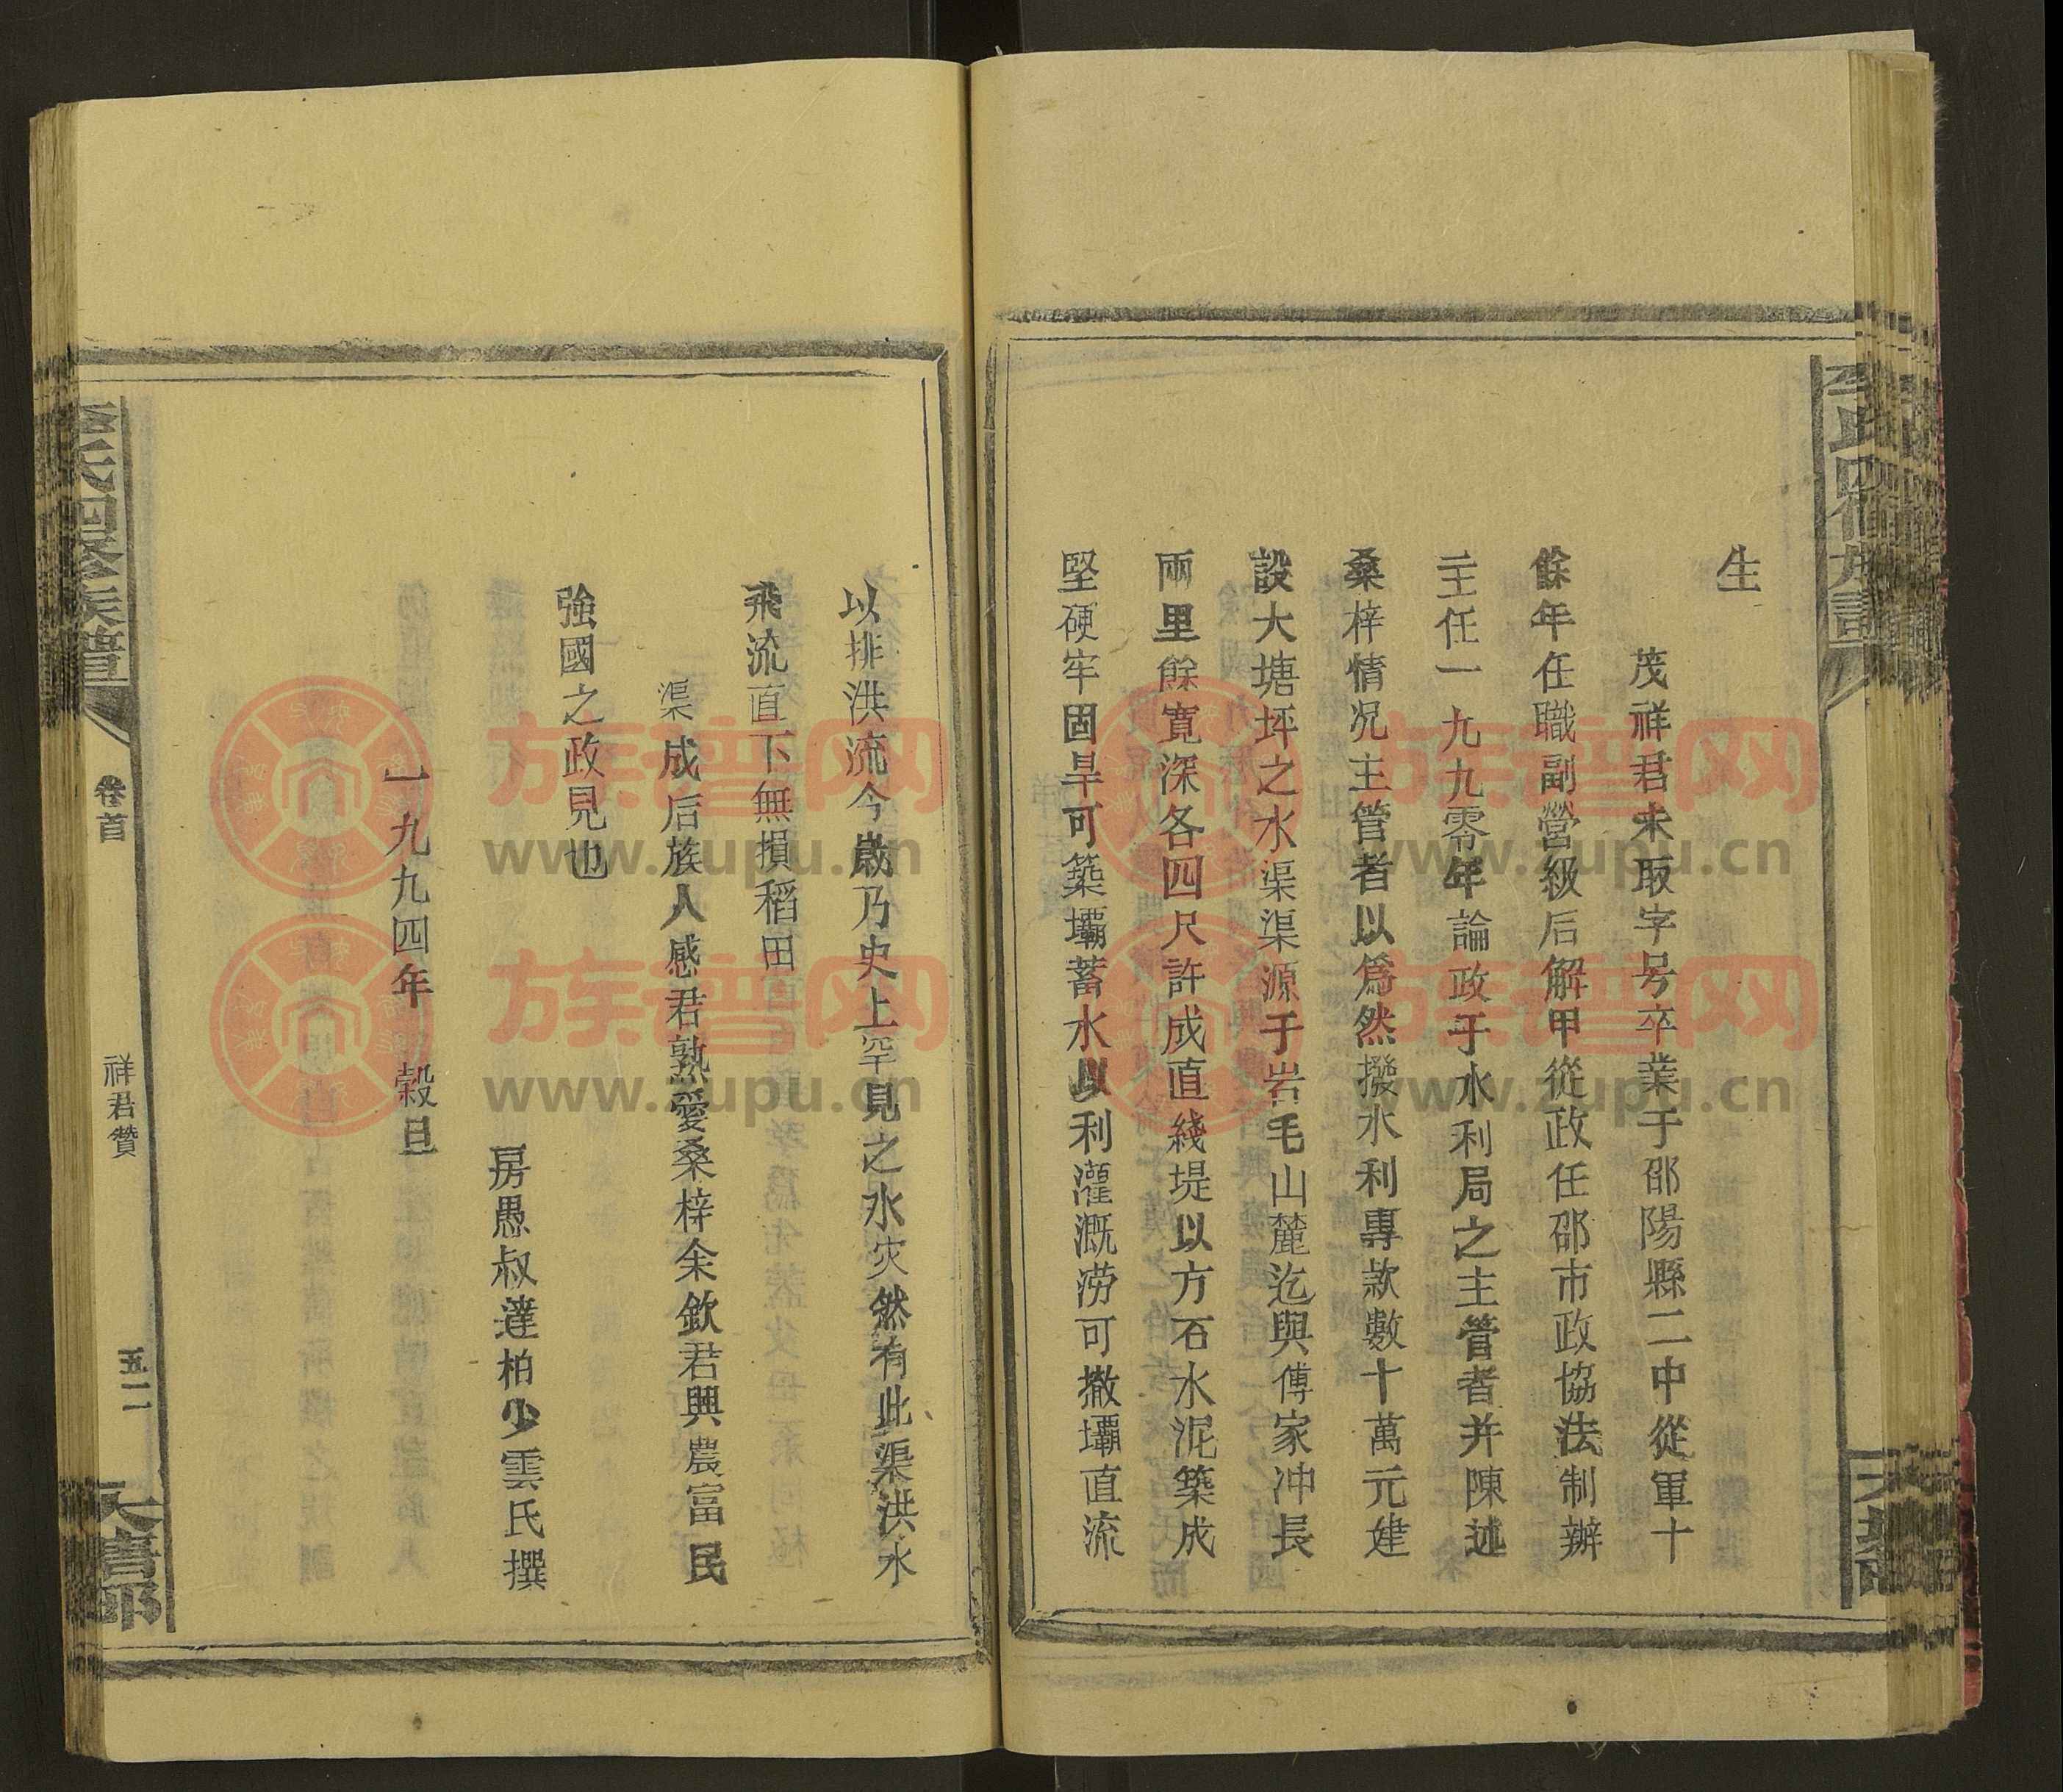 生
茂祥君未取字号卒業于邵陽縣二中從軍十
餘年任職副營級后解甲從政任邵市政協法制辦
主任一九九零年論政于水利局之主管者并陳述
桑梓情况主管者以爲然撥水利專款數十萬元建
設大塘坪之水渠渠源于岩毛山麓迄與傅家冲長
兩里餘寬深各四尺許成直綫堤以方石水泥築成
堅硬牢固旱可築壩蓄水以利灌溉澇可撤壩直流
以排洪流今歲乃史上罕見之水灾然有此渠洪水
飛流直下無損稻田
渠成后族人感君熟愛桑梓余欽君興農富民
強國之政見也
房愚叔達柏少雲氏撰
一九九四年 榖旦
李氏四修族譜
卷首
祥君贊
五二
族譜网
www.zupu.cn
族譜网
www.zupu.cn
族譜网
www.zupu.cn
族譜网
www.zupu.cn